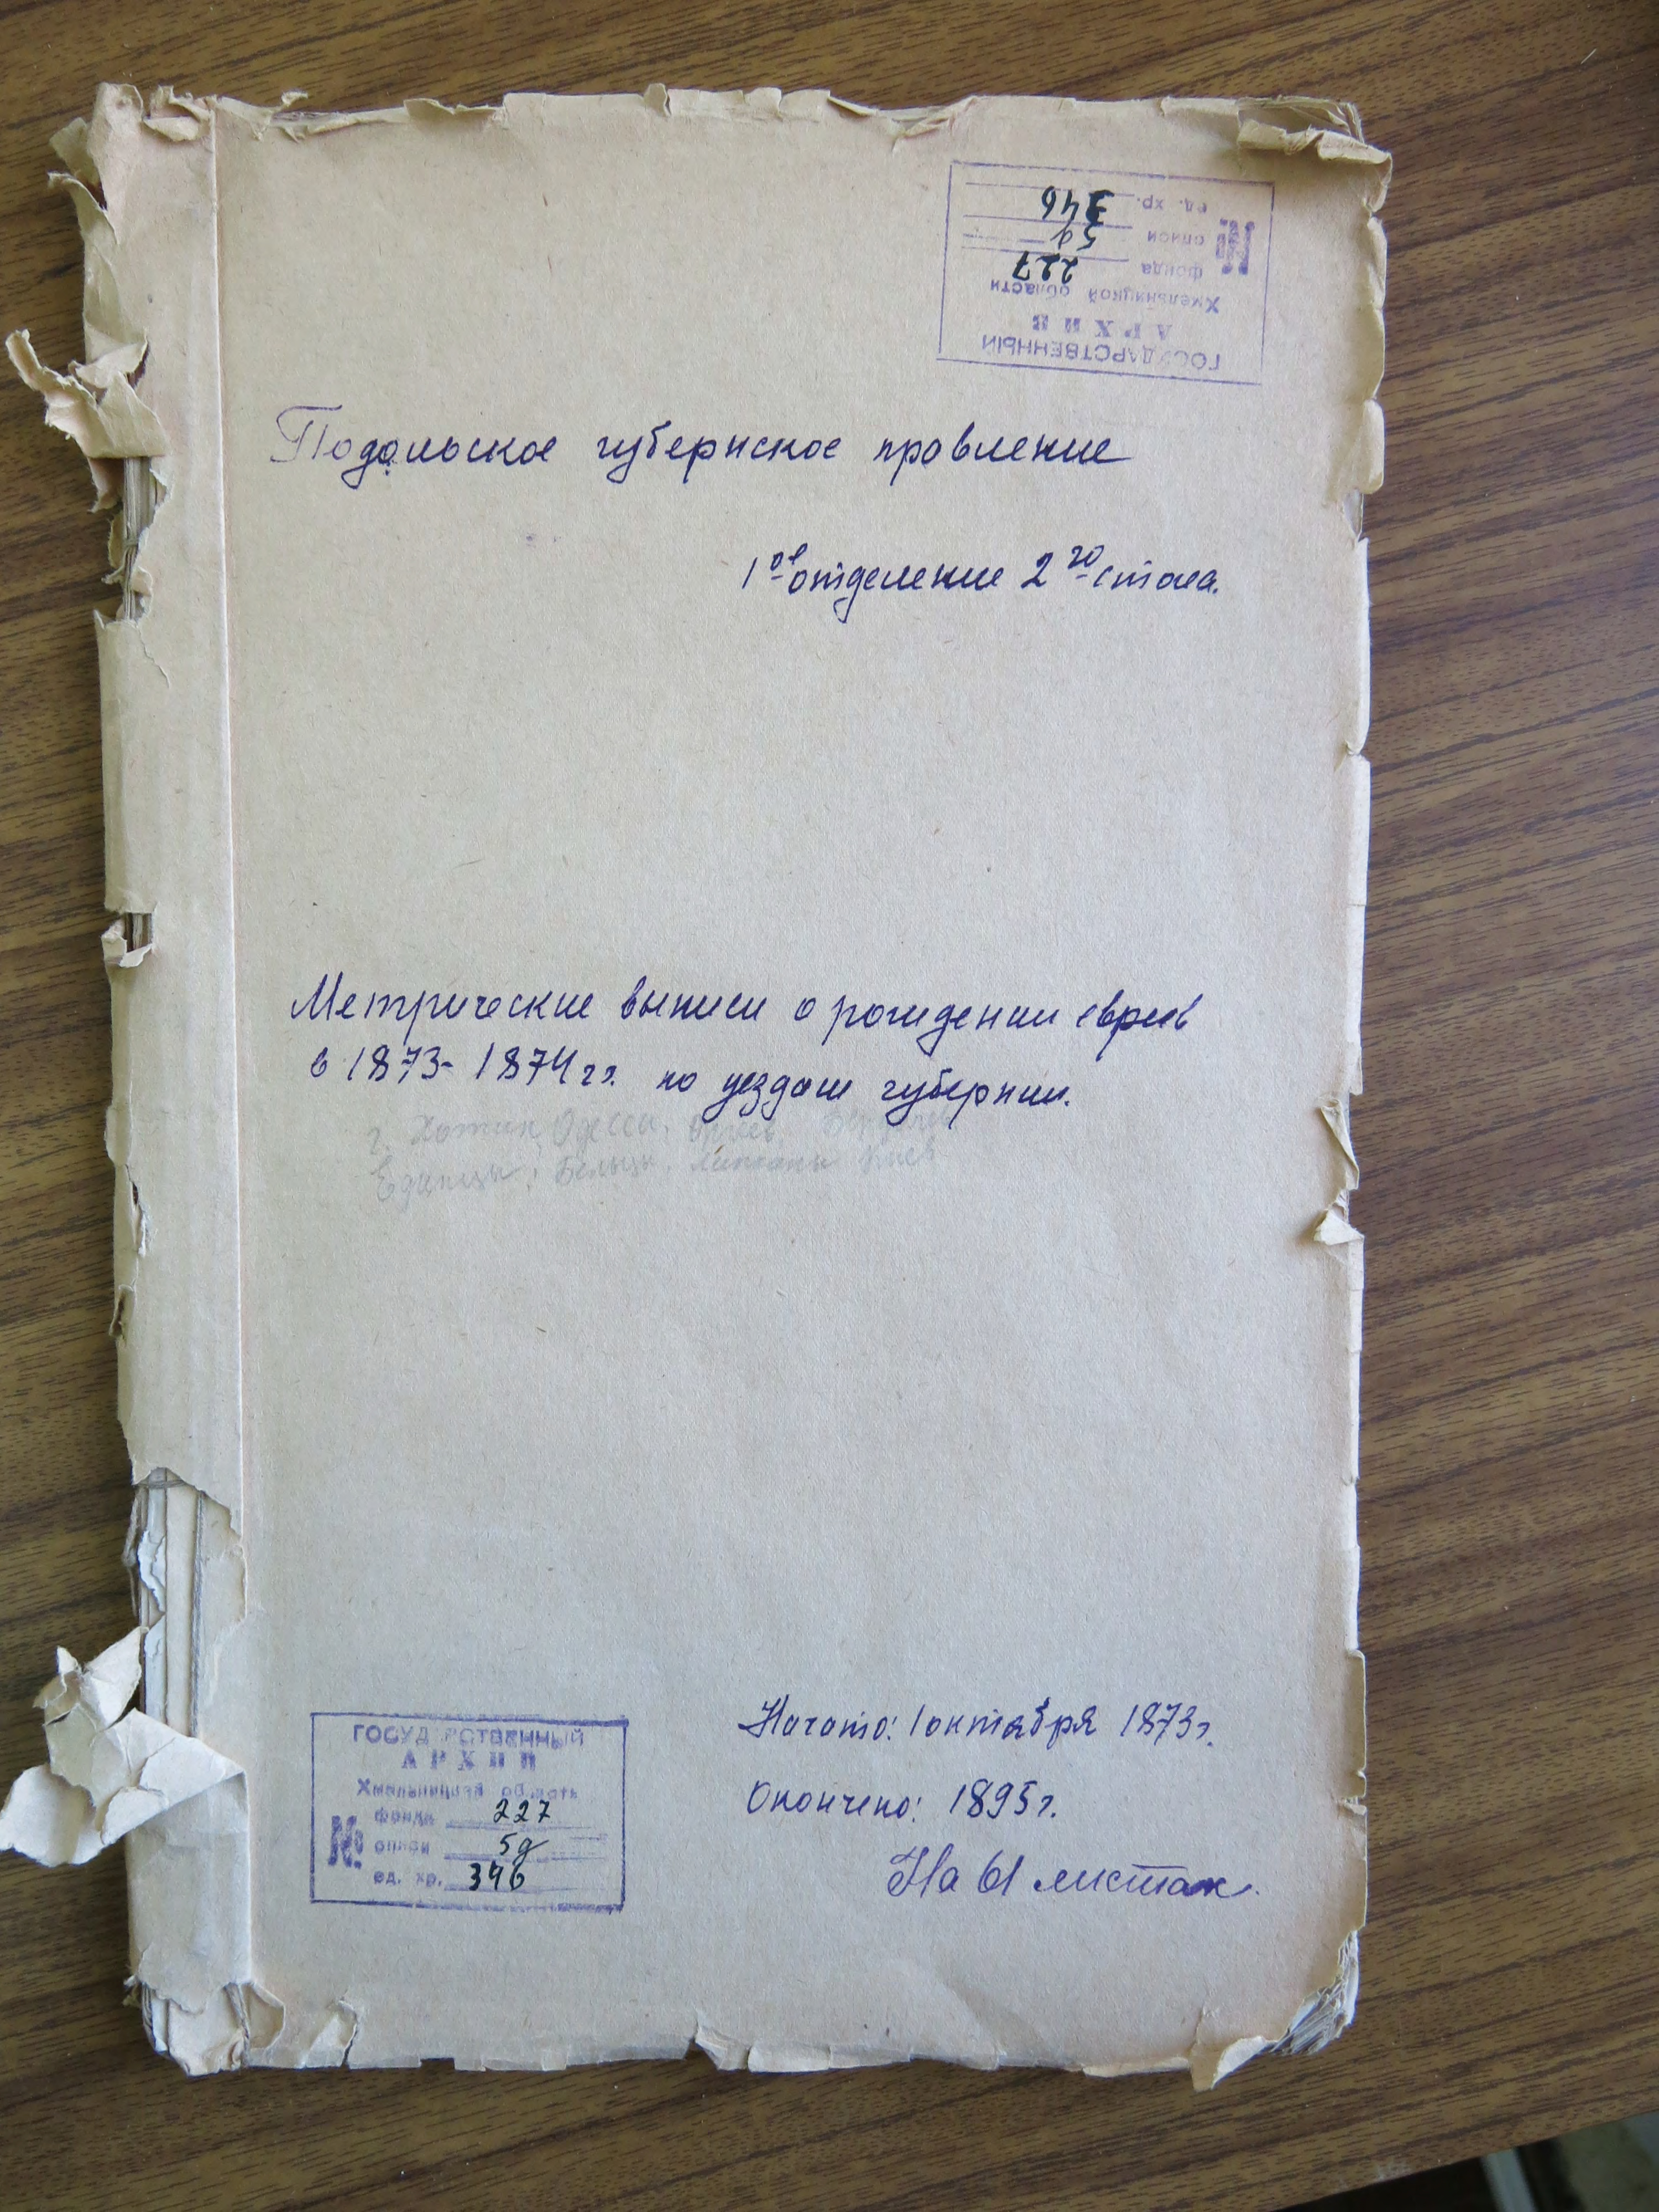 ГОСУДАРСТВЕННЫЙ
АРХИВ
Хмельницкой области
№
фонда 227
описи 5д
ед. хр. 346
Подольское губернское правление
1ое отделение 2го стола.
Метрические выписи о рождении евреев
в 1873-1874 гг. по уездам губернии.
г. Хотин, Одесса, Оргеев,
Единцы, Бельцы, Липканы Киев
Начато: 1 октября 1873 г.
Окончено: 1895 г.
На 61 листах.
ГОСУДАРСТВЕННЫЙ
АРХИВ
Хмельницкой области
№
фонда 227
описи 5д
ед. хр. 346